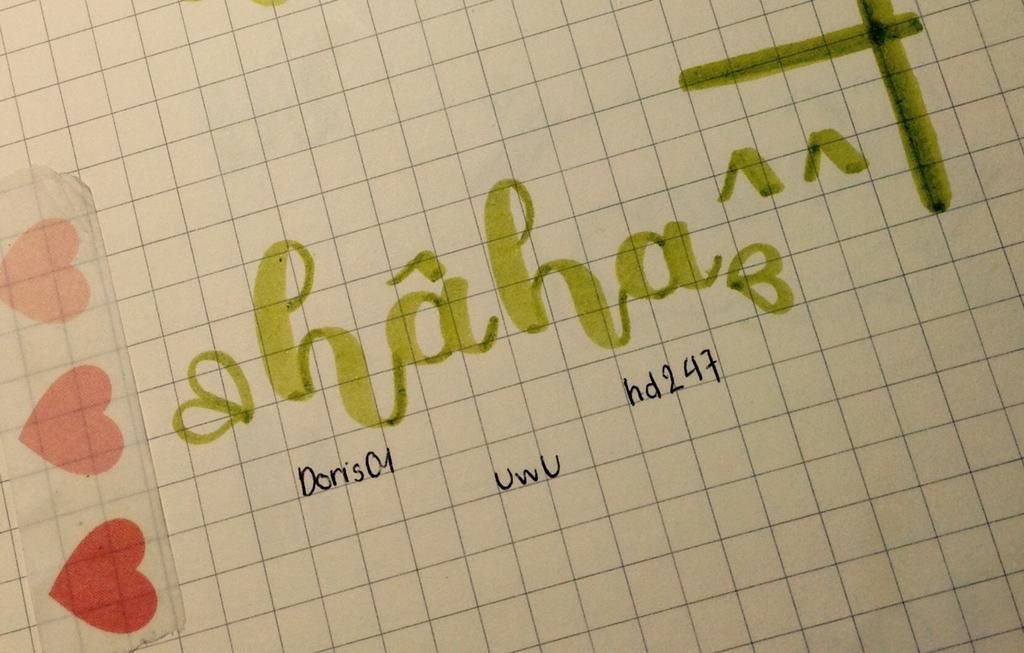 hâha ^^
hd247
Doris01 UwU